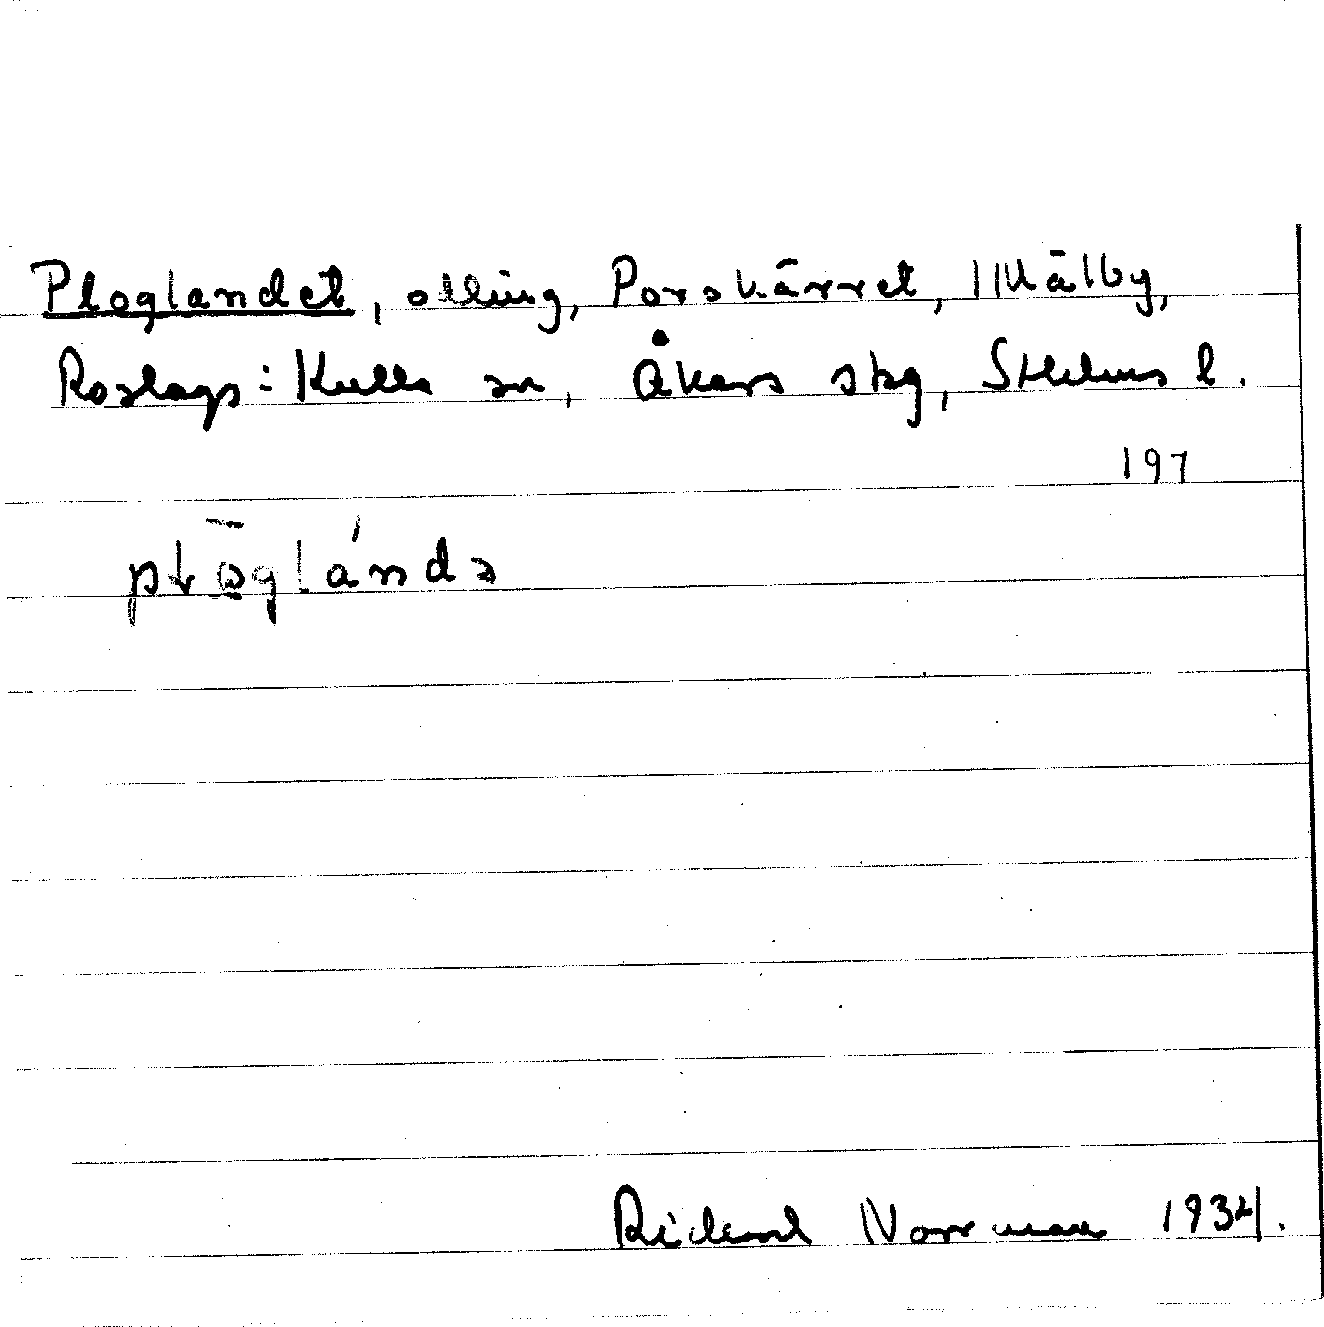 Ploglandet, odling, Porskärret,
Roslags-Kulla sn, Åkers skg, Sthlms l.
197
Rickard Norrman 1934.